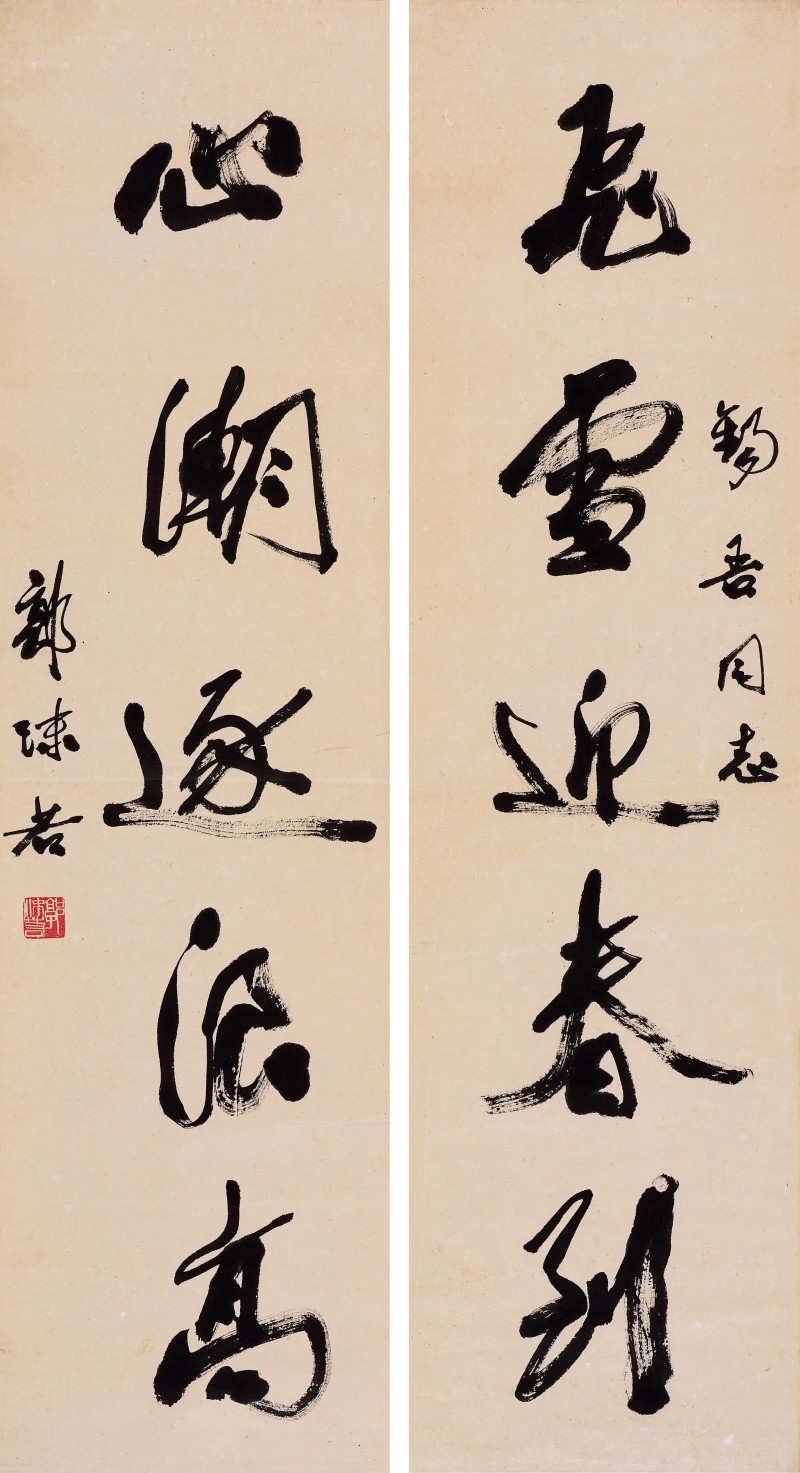 錫吾同志
飛雪迎春到
心潮逐浪高
郭沫若
郭沫若